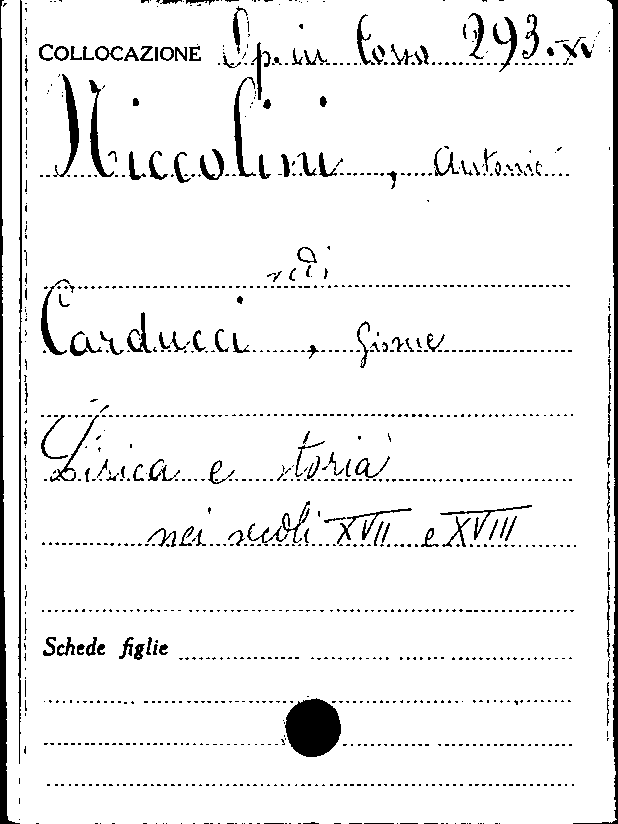 COLLOCAZIONE Op. in Corso 293.XV
Niccolini, Antonio
vedi
Carducci, Giosue
Lirica e storia
nei secoli XVII e XVIII
Schede figlie